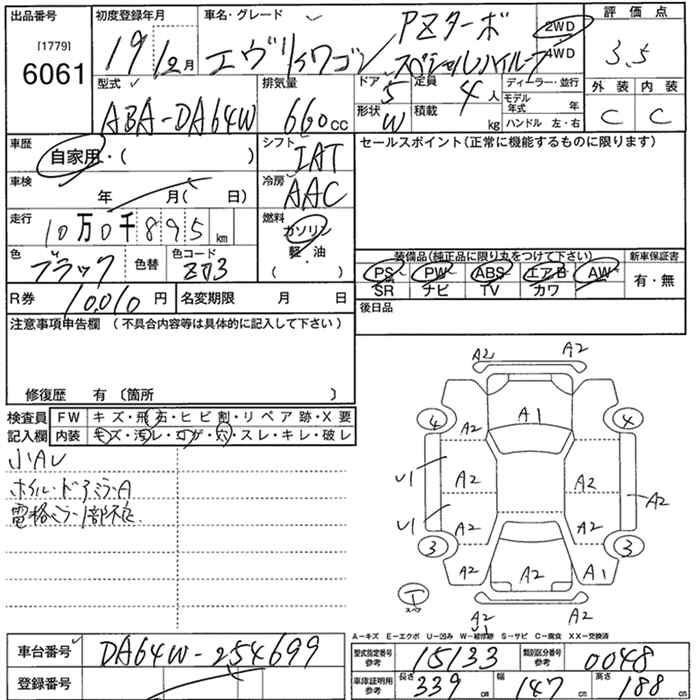 出品番号 初度登録年月 車名・グレード 評価点
[1779]
6061
19年12月 エヴリィワゴン PZターボ スペシャルハイルーフ 2WD 4WD 3.5
型式 排気量 ドア 5 定員 4人 ディーラー・並行 外装 内装
ABA-DA64W 660cc 形状 W 積載 kg モデル年式 年 C C
ハンドル 左・右
車歴 自家用・( ) シフト IAT セールスポイント(正常に機能するものに限ります)
車検 年 月( 日) 冷房 AAC
走行 10万0千895km 燃料 ガソリン
軽・油
( )
色 ブラック 色替 色コード ZJ3 装備品(純正品に限り丸をつけて下さい) 新車保証書
PS PW ABS エアB AW 有・無
SR ナビ TV カワ
R券 10,010円 名変期限 月 日 後日品
注意事項申告欄 (不具合内容等は具体的に記入して下さい)
修復歴 有 〔箇所 〕
検査員 FW キズ・飛石・ヒビ割・リペア跡・X要
記入欄 内装 キズ・汚レ・コゲ・穴・スレ・キレ・破レ
小AU
ホイル・ドアミラーA
電格ミラー1部不良
A2 A2
A1
4 4
A2 A2
U1 A2 A2
U1 A2 A2 A2
3 3
A2 A2 A1
スペア
A2 A1
A-キズ E-エクボ U-凹み W-補修跡 S-サビ C-腐食 XX-交換済
車台番号 DA64W-254699 型式指定番号 参考 15133 類別区分番号 参考 0048
登録番号 車庫証明用 参考 長さ 339cm 幅 147cm 高さ 188cm